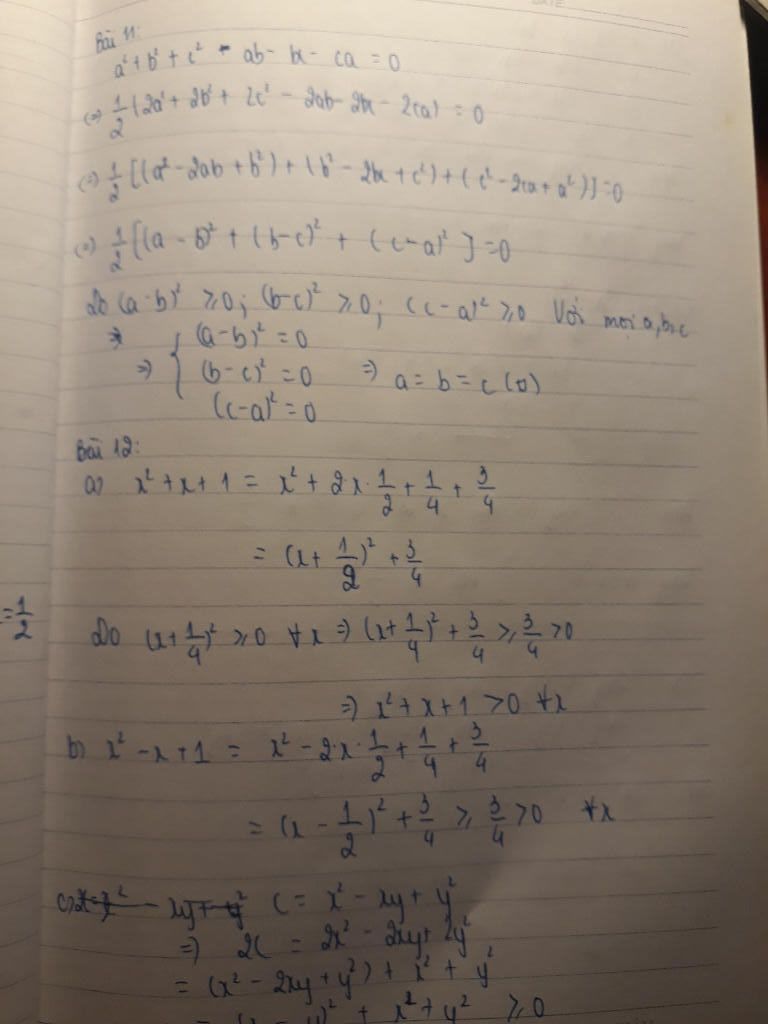 Bài 11:
a² + b² + c² - ab - bc - ca = 0
(=) 1/2 (2a² + 2b² + 2c² - 2ab - 2bc - 2ca) = 0
(=) 1/2 [(a² - 2ab + b²) + (b² - 2bc + c²) + (c² - 2ca + a²)] = 0
(=) 1/2 [(a - b)² + (b - c)² + (c - a)²] = 0
Do (a - b)² ≥ 0; (b - c)² ≥ 0; (c - a)² ≥ 0 Với mọi a, b, c
=> { (a - b)² = 0
=> (b - c)² = 0 => a = b = c (o)
(c - a)² = 0
Bài 12:
a) x² + x + 1 = x² + 2x . 1/2 + 1/4 + 3/4
= (x + 1/2)² + 3/4
= 1/2
Do (x + 1/4)² ≥ 0 ∀x => (x + 1/4)² + 3/4 ≥ 3/4 > 0
=> x² + x + 1 > 0 ∀x
b) x² - x + 1 = x² - 2x . 1/2 + 1/4 + 3/4
= (x - 1/2)² + 3/4 ≥ 3/4 > 0 ∀x
c) C = x² - xy + y²
=> 2C = 2x² - 2xy + 2y²
= (x² - 2xy + y²) + x² + y²
= (x - y)² + x² + y² ≥ 0